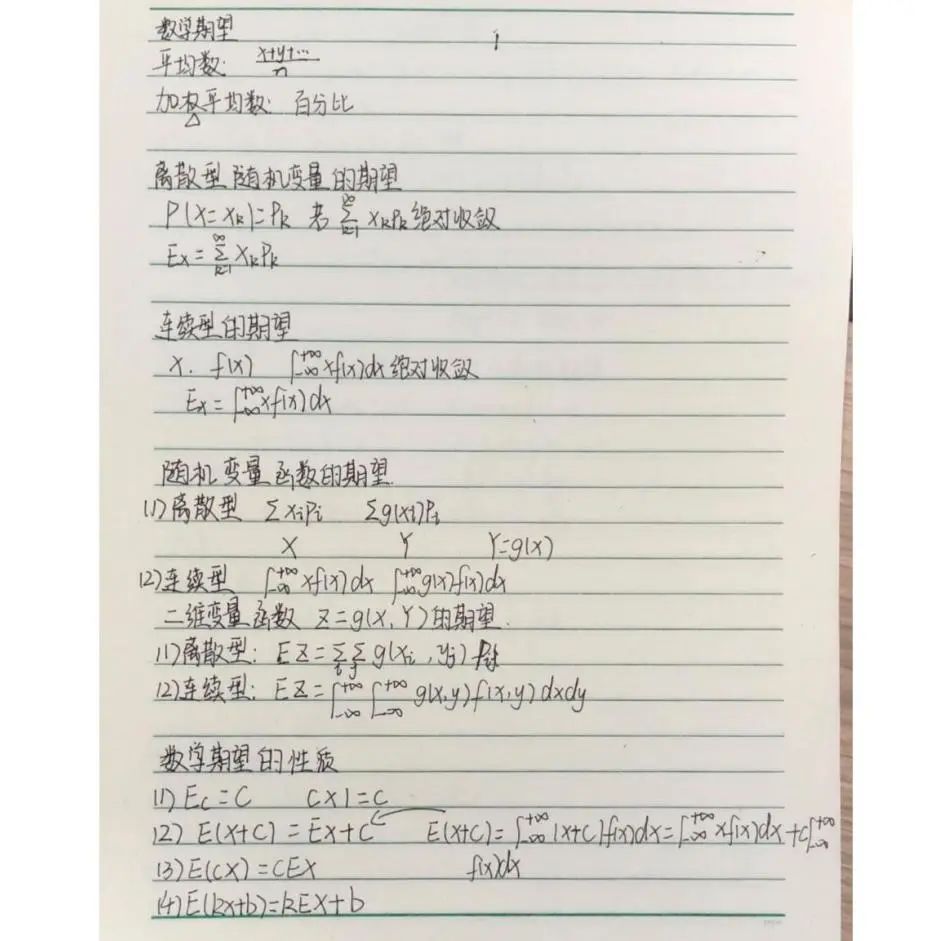 数学期望 1
平均数: (x+y+…)/n
加权平均数: 百分比
离散型随机变量的期望
P(X=xk)=Pk 若 ∑_{k=1}^{∞} xkPk 绝对收敛
Ex=∑_{k=1}^{∞} xkPk
连续型的期望
X. f(x) ∫_{-∞}^{+∞} xf(x)dx 绝对收敛
Ex=∫_{-∞}^{+∞} xf(x)dx
随机变量函数的期望.
(1)离散型 ∑xiPi ∑g(xi)Pi
X Y Y=g(x)
(2)连续型 ∫_{-∞}^{+∞} xf(x)dx ∫_{-∞}^{+∞} g(x)f(x)dx
二维变量函数 Z=g(X,Y)的期望.
(1)离散型: EZ=∑_i∑_j g(xi,yj)Pij
(2)连续型: EZ=∫_{-∞}^{+∞}∫_{-∞}^{+∞} g(x,y)f(x,y)dxdy
数学期望的性质
(1) Ec=C C×1=C
(2) E(x+c)=Ex+C E(x+c)=∫_{-∞}^{+∞}(x+c)f(x)dx=∫_{-∞}^{+∞}xf(x)dx+c∫_{-∞}^{+∞}
f(x)dx
(3) E(cx)=CEX
(4) E(kx+b)=kEX+b